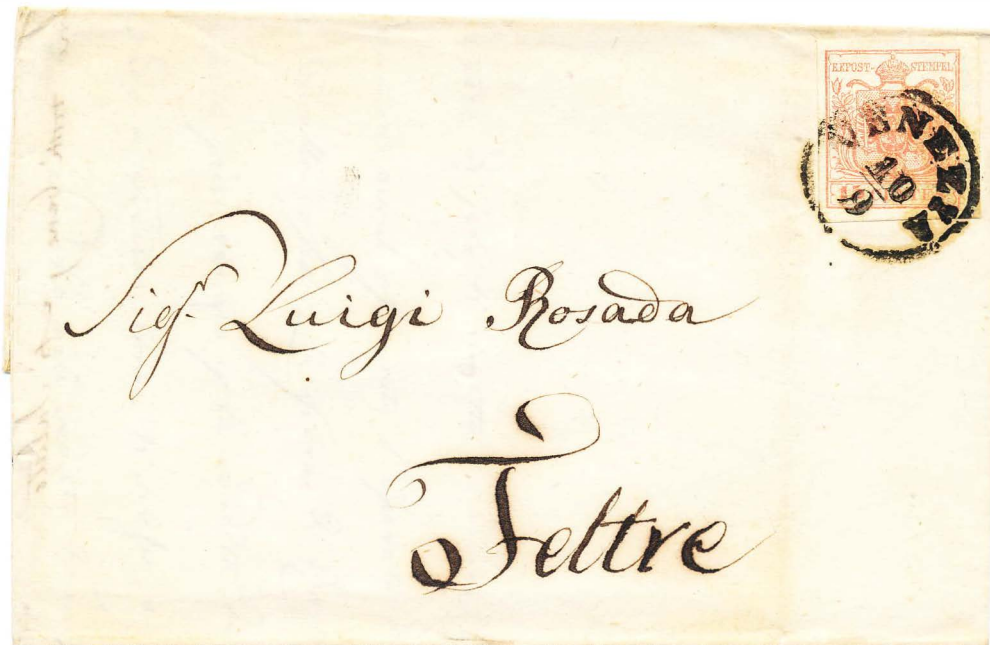 K.K.POST-STEMPEL
VENEZIA
10
9
Sigr. Luigi Rosada
Feltre